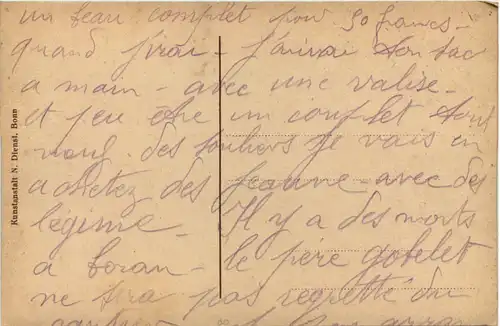 un beau complet pour 50 francs -
quand j'irai - j'aurai ton sac
a main - avec une valise -
et peu être un complet tout
neuf. des souliers je vais en
achetez des jeaune - avec des
légime - Il y a des morts
a - le père gobelet
ne sera pas regretté du
Kunstanstalt N. Dienst, Bonn